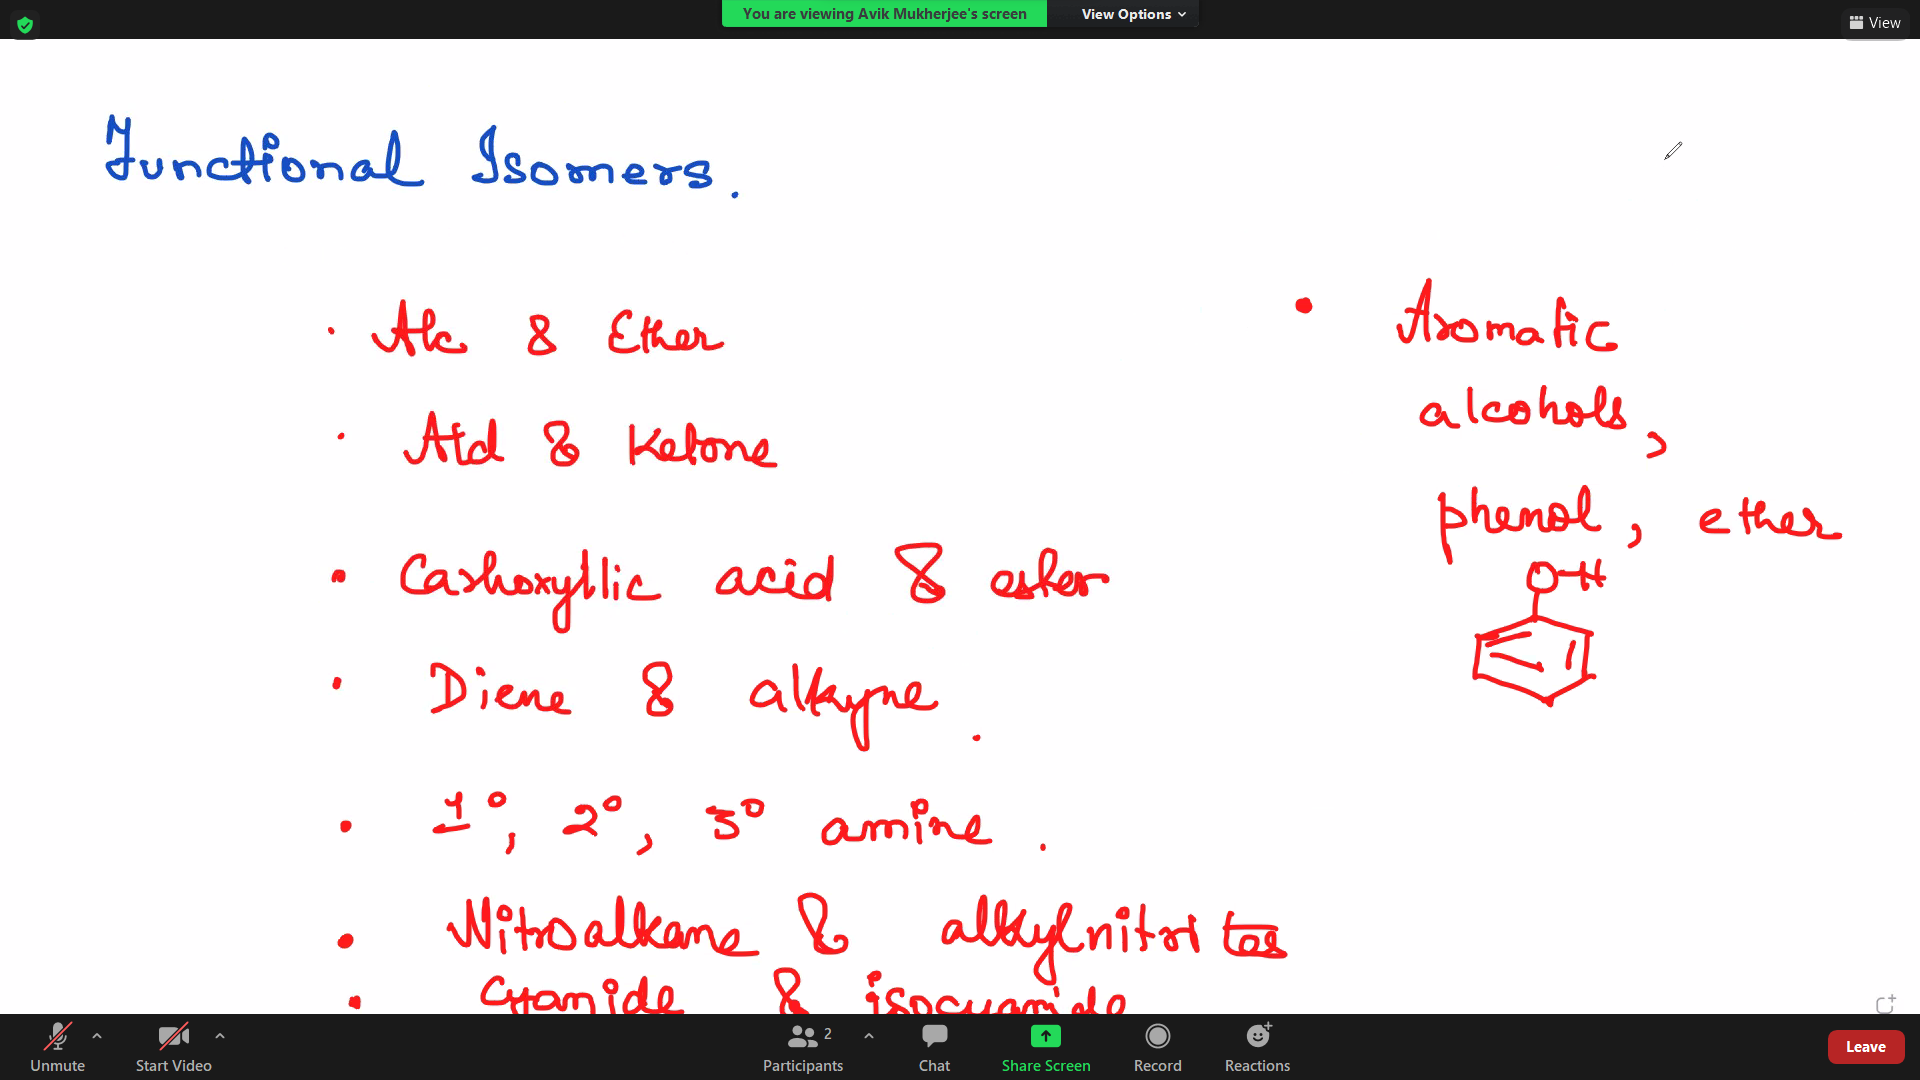 You are viewing Avik Mukherjee's screen
View Options
View
Functional Isomers.
· Alc & Ether
· Ald & Ketone
• Carboxyllic acid & ester
• Diene & alkyne.
• 1°, 2°, 3° amine.
• Nitroalkane & alkylnitrites
• Cyanide & isocyanide
• Aromatic
alcohols,
phenol, ether
O-H
Unmute
Start Video
Participants 2
Chat
Share Screen
Record
Reactions
Leave